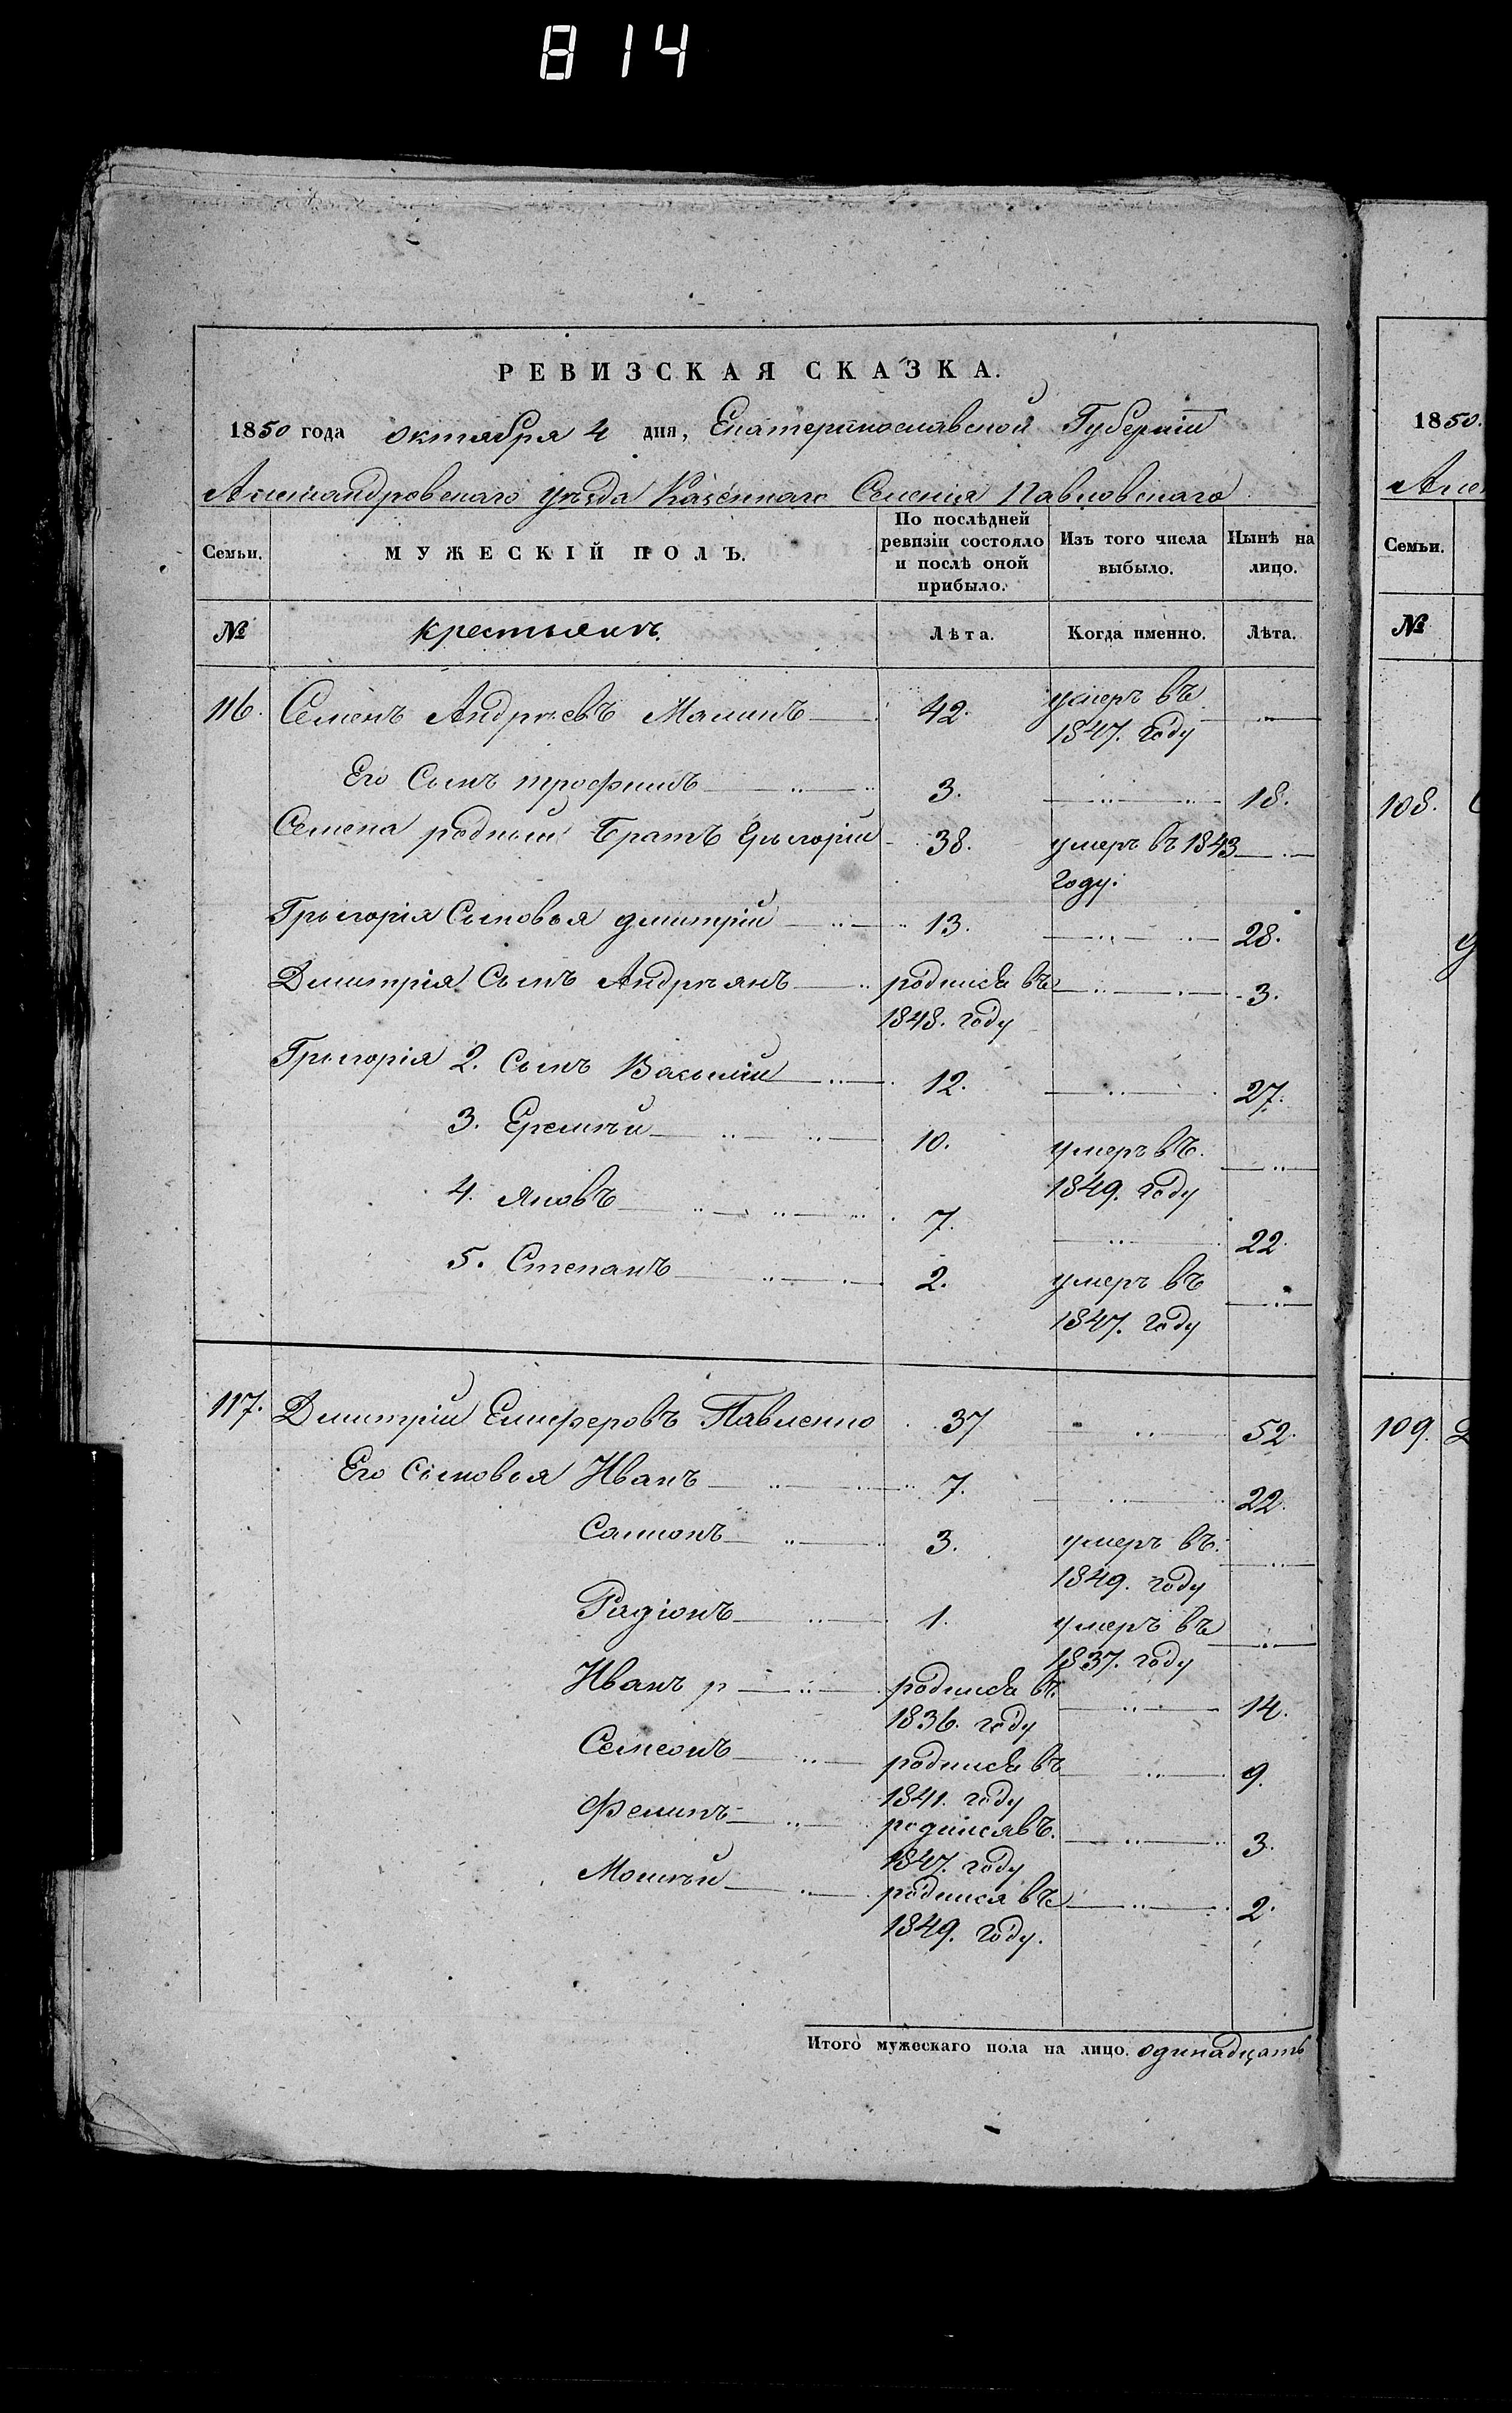 814
РЕВИЗСКАЯ СКАЗКА.
1850 года октября 4 дня, Екатеринославской Губерніи
Александровскаго уѣзда Казённаго Селенія Павловскаго
Семьи.
МУЖЕСКІЙ ПОЛЪ.
По послѣдней ревизіи состояло и послѣ оной прибыло.
Изъ того числа выбыло.
Нынѣ на лицо.
№
крестьянъ.
Лѣта.
Когда именно.
Лѣта.
116. Семенъ Андрѣевъ Малишъ 42. умеръ въ 1847. году
Его Сынъ трофимъ 3. 18.
Семена родный Братъ Грыгорій 38. умеръ въ 1843 году.
Грыгорія Сыновья дмитрій 13. 28.
Дмитрія Сынъ Андрѣянъ родился въ 1848. году 3.
Грыгорія 2. Сынъ Василій 12. 27.
3. Еремѣй 10. умеръ въ 1849. году
4. Яковъ 7. 22.
5. Степанъ 2. умеръ въ 1847. году
117. Дмитрій Елиферовъ Павленко 37 52.
Его Сыновья Иванъ 7. 22.
Самсонъ 3. умеръ въ. 1849. году
Радіонъ 1. умеръ въ 1837. году
Иванъ родился въ 1836. году 14.
Семеонъ родился въ 1841. году 9.
Филипъ родился въ. 1847. году 3.
Мокѣй родился въ 1849. году. 2.
Итого мужескаго пола на лицо. одинадцать
1850.
Семьи.
№
108.
109.